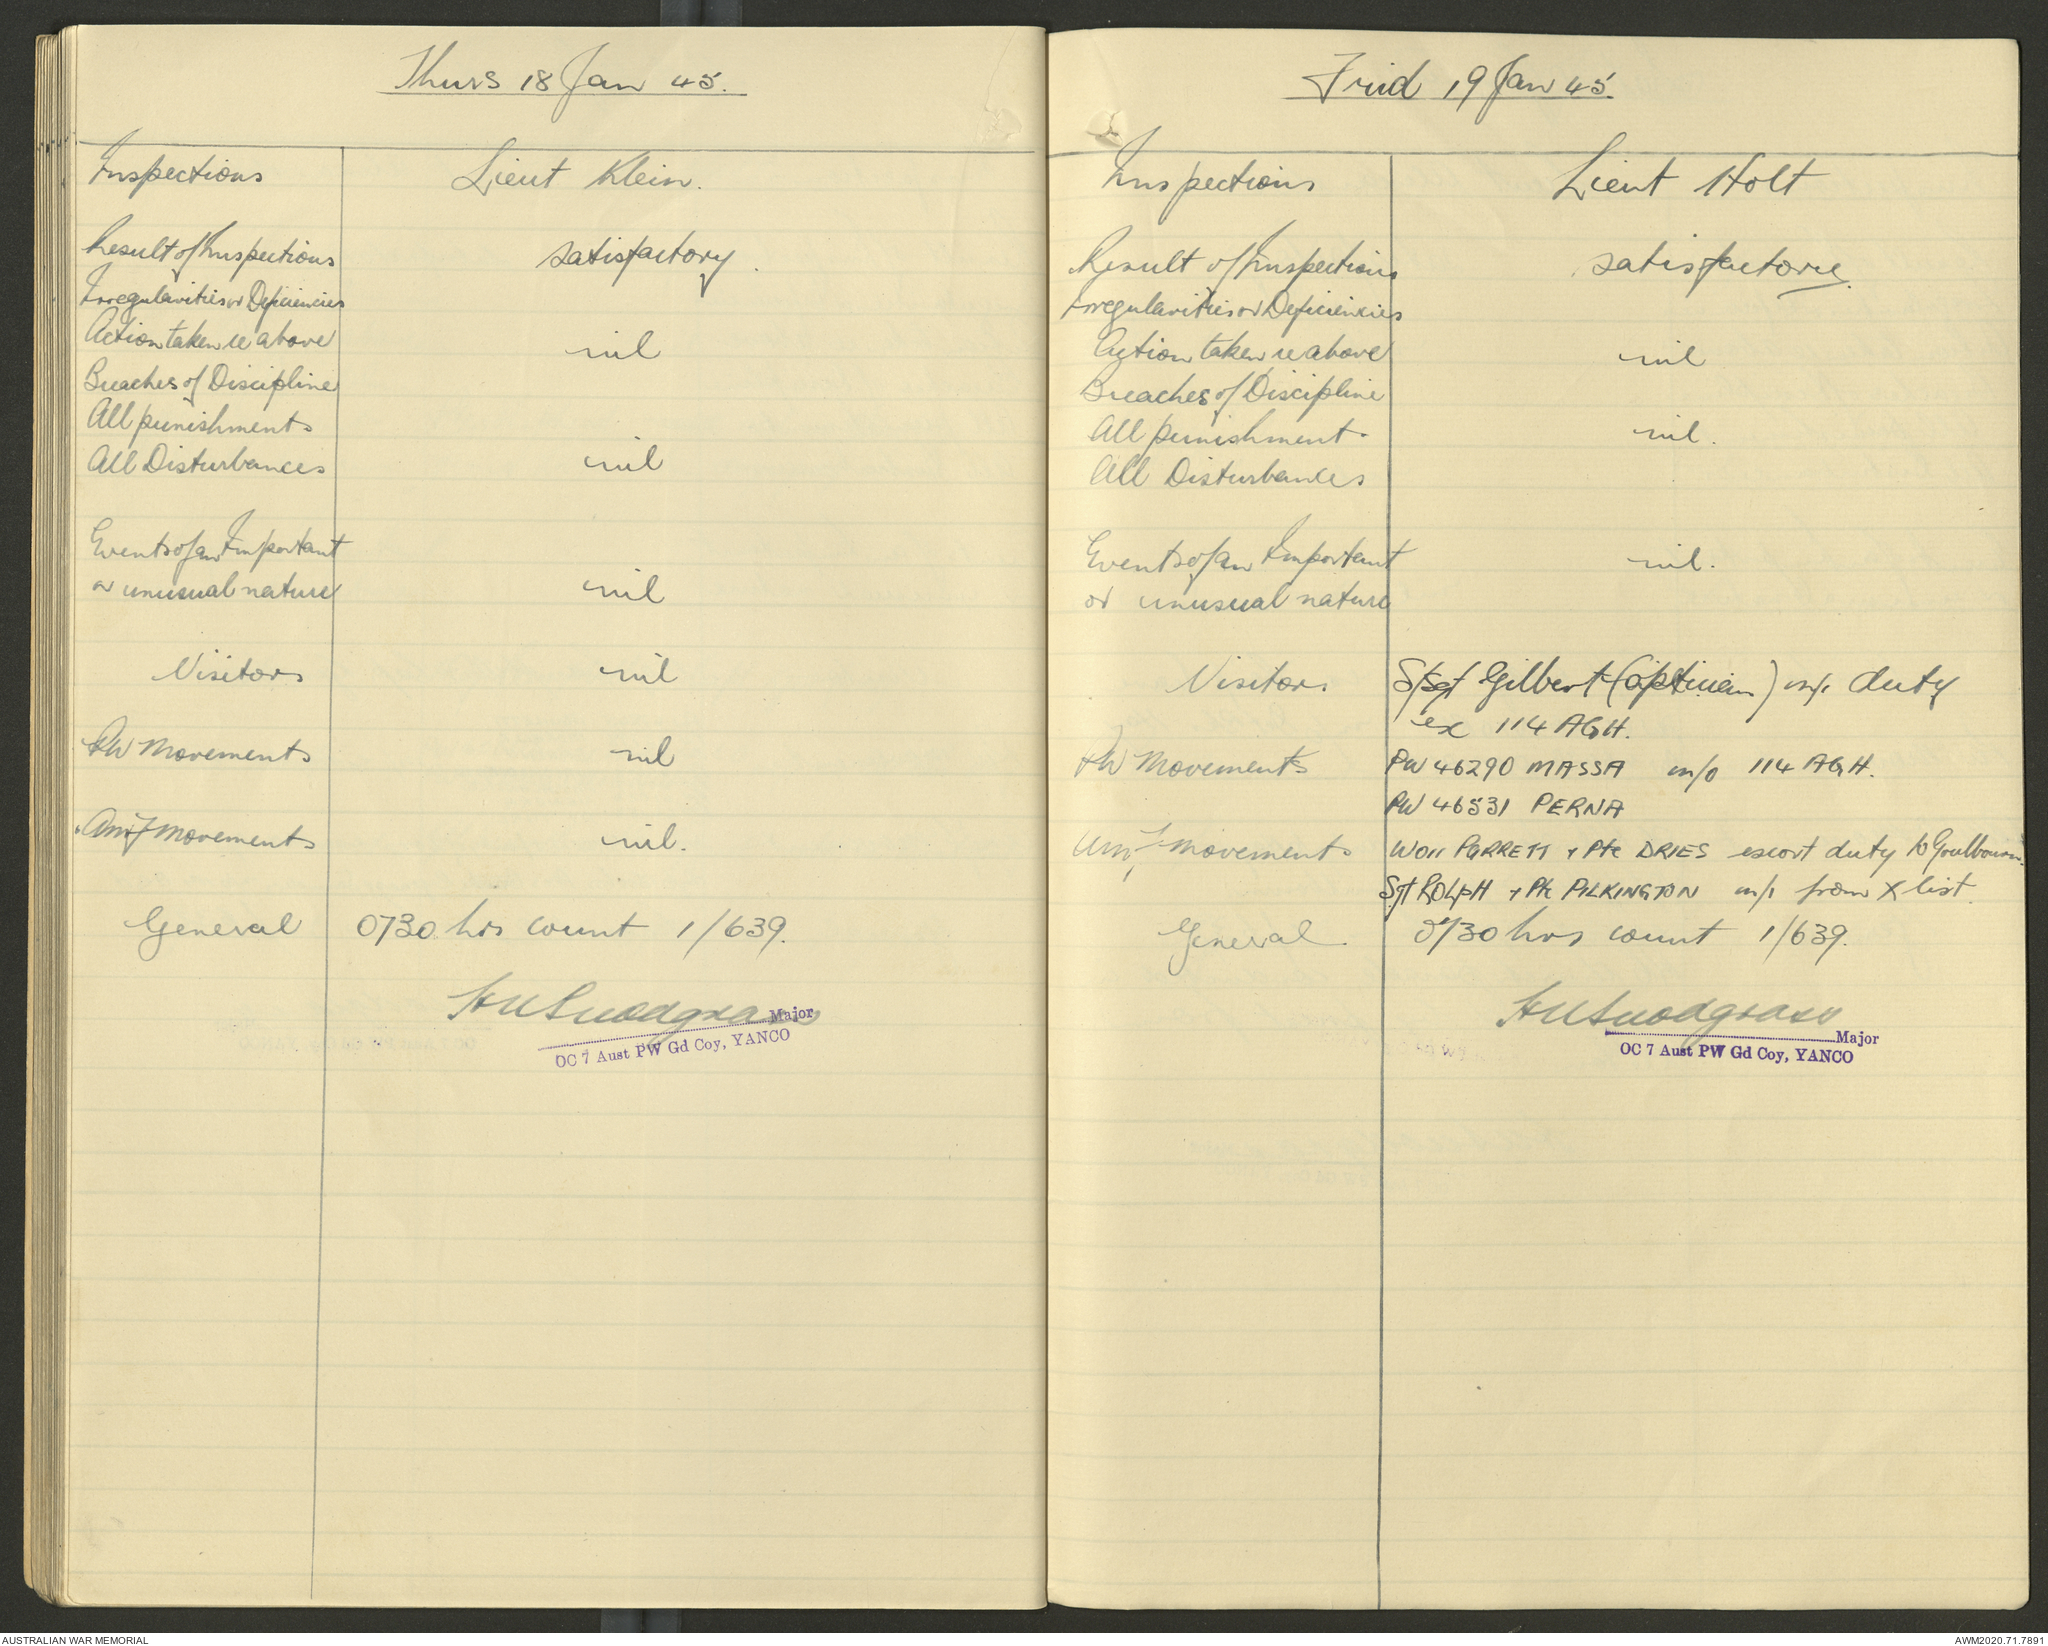 Thurs 18 Jan 45.
Inspections Lieut Klein.
Result of Inspections satisfactory.
Irregularities or Deficiencies
Action taken re above nil
Breaches of Discipline
All punishments
All Disturbances nil
Events of an Important
or unusual nature nil
Visitors nil
PW Movements nil
AMF Movements nil.
General 0730 hrs count 1/639.
HW Snodgrass Major
OC 7 Aust PW Gd Coy, YANCO
Frid 19 Jan 45.
Inspections Lieut Holt
Result of Inspections satisfactory.
Irregularities or Deficiencies
Action taken re above nil
Breaches of Discipline
All punishment nil.
All Disturbances
Events of an Important nil.
or unusual nature
Visitors S/Sgt Gilbert (optician) m/i duty
ex 114 AGH.
PW Movements PW 46290 MASSA m/o 114 AGH.
PW 46531 PERNA
AMF Movements WOII PARRETT & Pte DRIES escort duty to Goulbourn.
Sgt ROLPH & Pte PILKINGTON m/i from X list.
General 0730 hrs count 1/639.
HW Snodgrass
Major
OC 7 Aust PW Gd Coy, YANCO
AUSTRALIAN WAR MEMORIAL AWM2020.71.7891